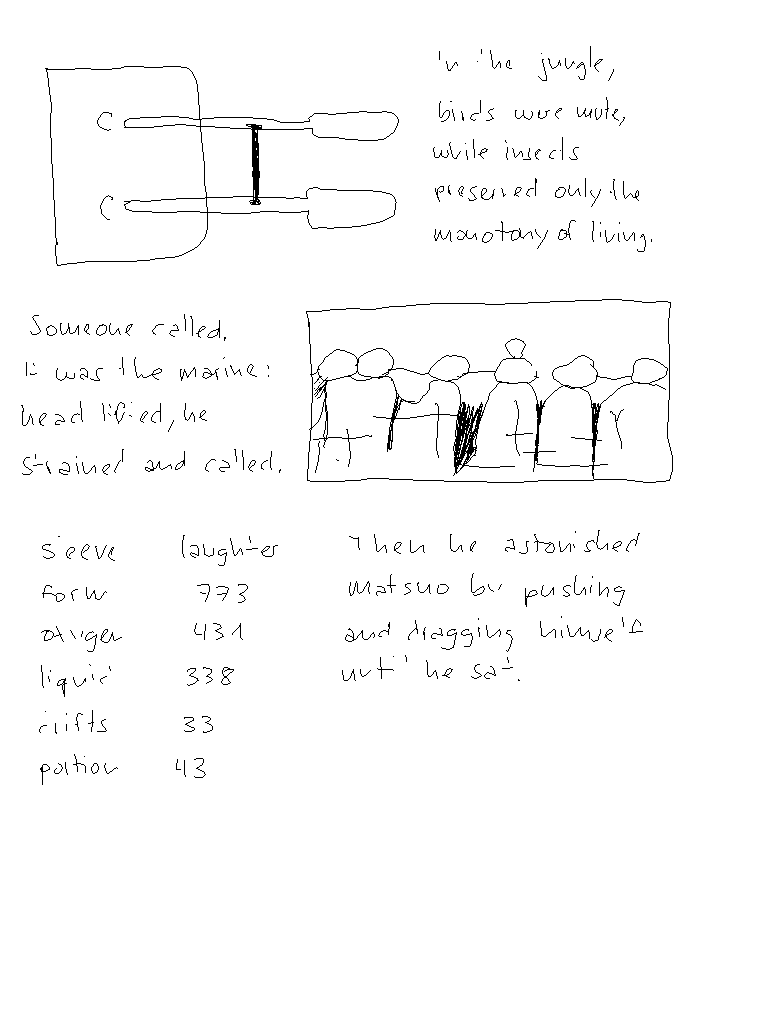 C
C
in the jungle,
birds were mute,
while insects
preserved only the
monotony of living.
Someone called.
It was the marine:
head lifted, he
strained and called.
sleeve laughter
form 773
oxygen 431
liquid 338
drifts 33
portion 43
Then he astonished
Matsuo by pushing
and dragging himself
until he sat.